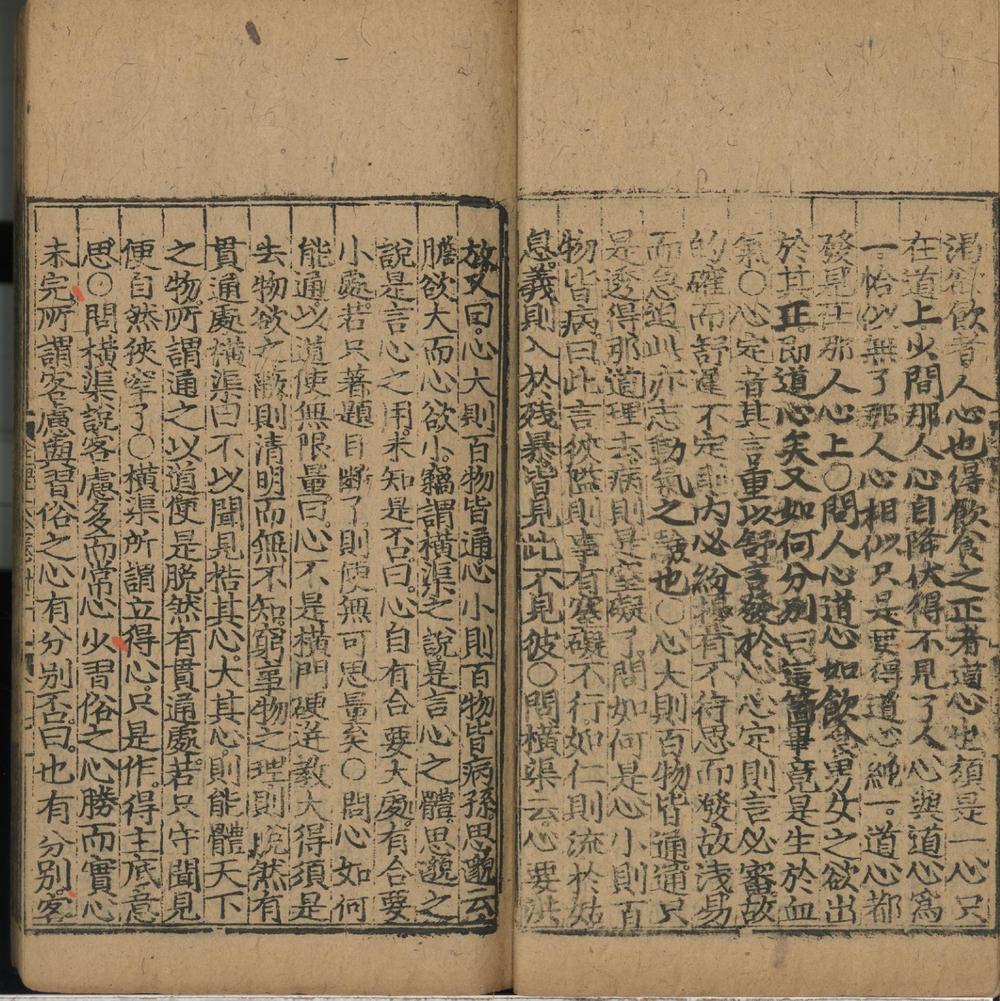 渴欲飲者人心也得飲食之正者道心也須是一心只
在道上少間那人心自降伏得不見了人心與道心為
一恰似無了那人心相似只是要得道心純一道心都
發見在那人心上○問人心道心如飲食男女之欲出
於其正即道心矣又如何分別曰這箇畢竟是生於血
氣○心定者其言重以舒言發於心心定則言必審故
的確而舒遲不定則內必紛擾有不待思而發故淺易
而急迫此亦志動氣之也○心大則百物皆通通只
是透得那道理去病則是窒礙了問如何是心小則百
物皆病曰此言狹隘則事有塞礙不行如仁則流於姑
息義則入於殘暴皆見此不見彼○問橫渠云心要洪
放又曰心大則百物皆通心小則百物皆病孫思邈云
膽欲大而心欲小竊謂橫渠之說是言心之體思邈之
說是言心之用未知是否曰心自有合要大處有合要
小處若只著題目斷了則便無可思量矣○問心如何
能通以道使無限量曰心不是橫門硬迸教大得須是
去物欲之蔽則清明而無不知窮事物之理則脫然有
貫通處橫渠曰不以聞見梏其心大其心則能體天下
之物所謂通之以道便是脫然有貫通處若只守聞見
便自然狹窄了○橫渠所謂立得心只是作得主底意
思○問橫渠說客慮多而常心少習俗之心勝而實心
未完所謂客慮與習俗之心有分別否曰也有分別客